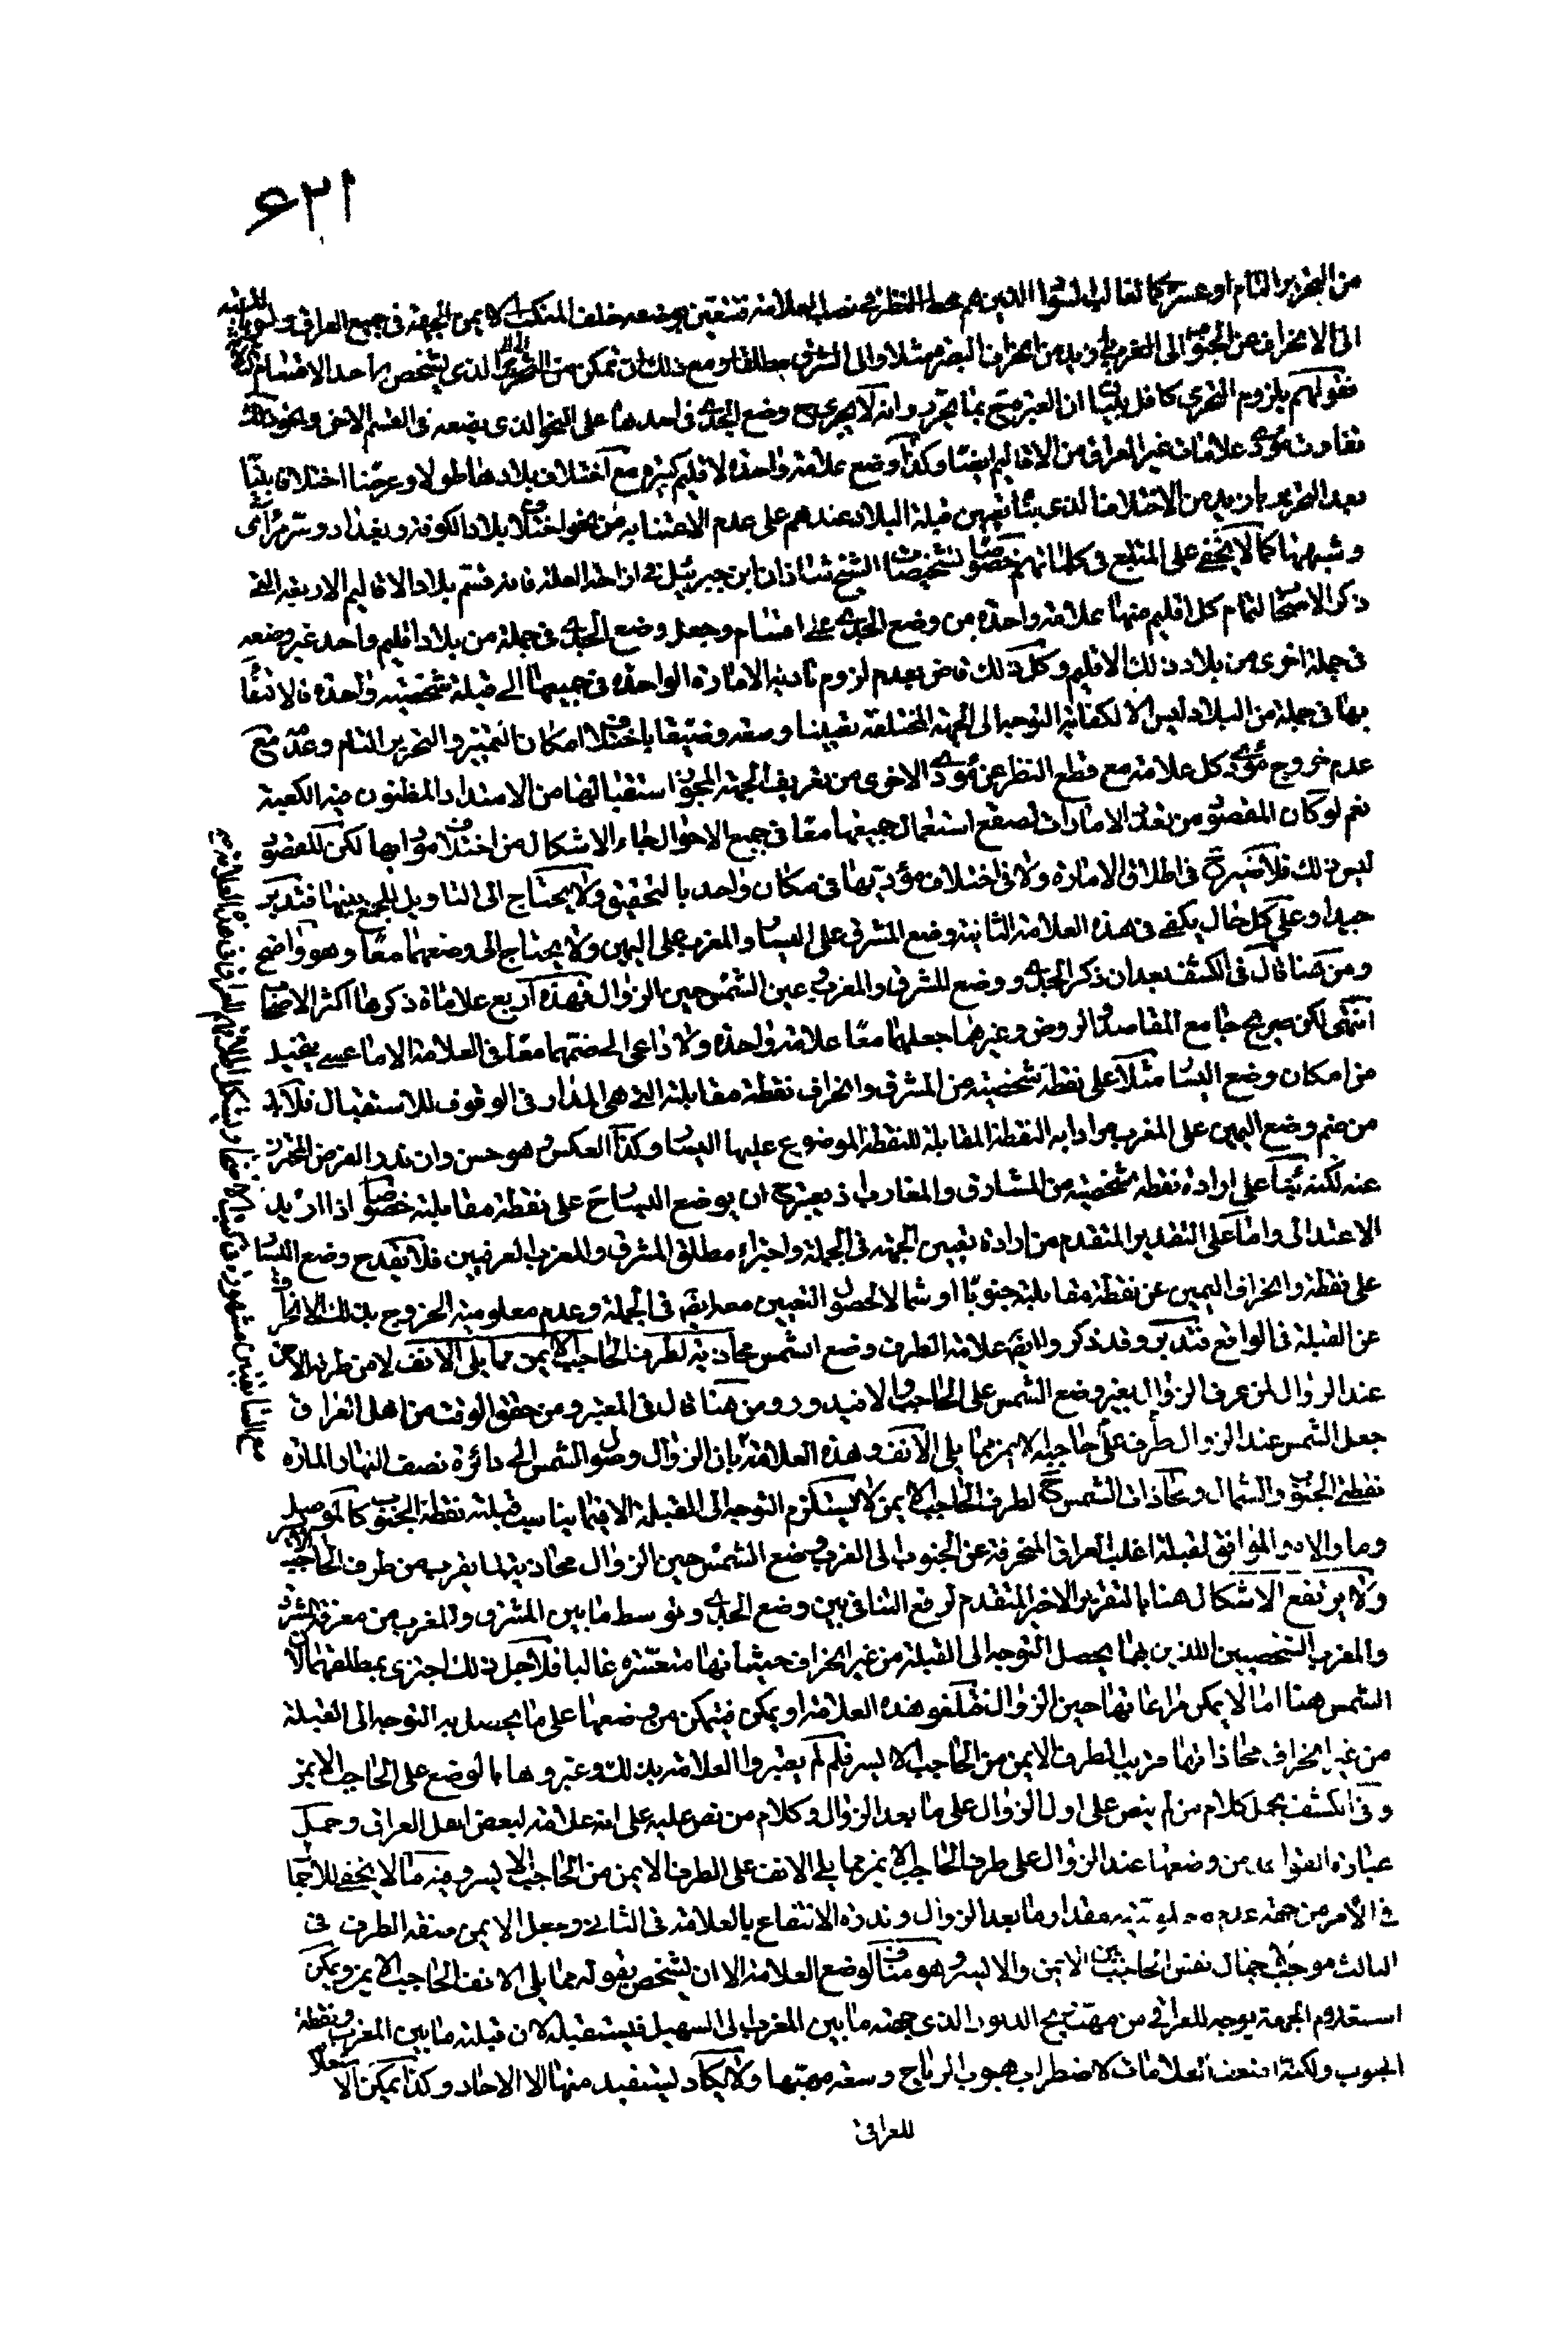 ۶۲۱
من التحرير التام او عسر كما لغالب الذين هم محط النظر في نصب العلامة فتتعين بوضعه خلف المنكب الايمن الجهة في جميع العراق
الى الانحراف عن الجنوب الى المغرب وازيد من انحراف البصرة مثلا والى الشرق مطلقا ومع ذلك ان تمكن من الذي يشخص به احد الاقسام
فقولهم بلزوم التحري كافل ببيان ان العبرة ح بما يتحرى وانه لا يجري ح وضع الجدي في احدها على النحو الذي يضعه في القسم الاخر ونحو ذلك
تفاوت مؤدى علامات غير العراق من الاقاليم ايضا وكذا وضع علامة واحدة لاقليم كبيرة مع اختلاف بلادها طولا وعرضا اختلافا بينا
بعد بازيد من الاختلاف الذي بنائهم في قبلة البلاد عندهم على عدم الاعتناء به من نحو اختلاف بلاد الكوفة وبغداد وسر من رأى
وشبهها كما لا يخفى على المتتبع في كلماتهم خصوصا تشخيصات الشيخ شاذان ابن جبرئيل في ازاحة العلة فانه قسم بلاد الاقاليم الاربعة التي
ذكر الاصحاب لتمام كل اقليم منها علامة واحدة من وضع الجدي على اقسام وجعل وضع الجدي في جملة من بلاد اقليم واحد غير وضعه
في جملة اخرى من بلاد ذلك الاقليم وكل ذلك قاض بعدم لزوم تادية الامارة الواحدة في جميعها الى قبلة شخصية واحدة فالاكتفاء
بها في جملة من البلاد ليس الا لكفاية التوجه الى الجهة المختلفة تعيينا وسعة وضيقا باختلاف امكان التمييز والتحرير التام وعدمه مع
عدم خروج مؤدى كل علامة مع قطع النظر عن مؤدى الاخرى من تعريف الجهة المجوز استقبالها من الامتداد المظنون فيه الكعبة
نعم لو كان المقصود من تعدد الامارات لصقع استعمال جميعها معا في جميع الاحوال لجاء الاشكال من اختلاف مؤداها لكن المقصود
ليس ذلك فلا ضير ح في اطلاق الامارة ولا في اختلاف مؤديها في مكان واحد بالتحقيق ولا يحتاج الى التاويل للجمع بينها فتدبر
جيدا وعلى كل حال يكفي في هذه العلامة الثانية وضع المشرق على اليسار والمغرب على اليمين ولا يحتاج الى وضعهما معا وهو واضح
ومن هنا قال في الكشف بعد ان ذكر الجدي ووضع المشرق والمغرب وعين الشمس حين الزوال فهذه اربع علامات ذكرها اكثر الاصحاب
انتهى لكن صريح جامع المقاصد والروض وغيرهما جعلهما معا علامة واحدة ولا داعي الى ضمهما معا في العلامة الا ما عسى يتخيل
من امكان وضع اليسار مثلا على نقطة شخصية من المشرق وانحراف نقطة مقابلته التي هي المدار في الوقوف للاستقبال فلا بد
من ضم وضع اليمين على المغرب مرادا به النقطة المقابلة للنقطة الموضوع عليها اليسار وكذا العكس وهو حسن وان ندر الفرض المتحرز
عنه لكنه بناء على ارادة نقطة شخصية من المشارق والمغارب اذ يعتبر ح ان يوضع اليسار ح على نقطة مقابلته خصوصا اذا اريد
الاعتدالي واما على التقدير المتقدم من ارادة تعيين الجهة في الجملة واجزاء مطلق المشرق والمغرب العرفيين فلا يقدح وضع اليسار
على نقطة وانحراف اليمين عن نقطة مقابلته جنوبا او شمالا لحصول التعيين معه ايضا في الجملة وعدم معلومية الخروج بذلك الانحراف
عن القبلة في الواقع فتدبر وقد ذكروا ايضا علامة الطرف وضع الشمس محاذية لطرف الحاجب الايمن مما يلي الانف لا من طرفه الاخر
عند الزوال لمن عرف الزوال بغير وضع الشمس على الحاجب والا فيدور ومن هنا قال في المعتبر ومن حقق الوقت من اهل العراق
جعل الشمس عند الزوال طرف على حاجبه الايمن مما يلي الانف وهذه العلامة بان الزوال وصول الشمس الى دائرة نصف النهار المارة
نقطتي الجنوب والشمال ومحاذات الشمس ح لطرف الحاجب الايمن لا يستلزم التوجه الى القبلة الا فيما يناسب قبلته نقطة الجنوب كالموصل
وما والاه والموافق لقبلة اغلب العراق المنحرفة عن الجنوب الى الغرب وضع الشمس حين الزوال محاذية لما يقرب من طرف الحاجب الايسر
ولا يرتفع الاشكال هنا بالتقرير الاخير المتقدم لرفع التنافي بين وضع الجدي وتوسط ما بين المشرق والمغرب من معرفة المشرق
والمغرب الشخصيين اللذين بهما يحصل التوجه الى القبلة من غير انحراف حيث انها متعسرة غالبا فلاجل ذلك اجتزى بمطلقهما لان
الشمس هنا اما لا يمكن مراعاتها حين الزوال فتلغو هذه العلامة او يمكن فيتمكن من وضعها على ما يحصل به التوجه الى القبلة
من غير انحراف محاذاتها قريب الطرف الايمن من الحاجب الايسر فلم لم يعتبروا العلامة بذلك وعتبروها بالوضع على الحاجب الايمن
وفي الكشف يحمل كلام من لم ينص على اول الزوال على ما بعد الزوال وكلام من نص عليه على انه علامة لبعض اهل العراق وحمل
عبارة القواعد من وضعها عند الزوال على طرف الحاجب الايمن مما يلي الانف على الطرف الايمن من الحاجب الايسر وفيه ما لا يخفى للاجمال
في الامر من جهة عدم مقدار ما بعد الزوال وندرة الانتفاع بالعلامة في الثاني وجعل الايمن صفة الطرف في
الثالث موجب لاجمال نفس الحاجب بين الايمن والايسر وهو مناف لوضع العلامة الا ان يشخص بقوله مما يلي الانف الحاجب الايمن ويمكن
استعلام الجهة بوجه للعراقي من مهب ريح الدبور الذي جهته ما بين المغرب الى السهيل فيستقبله لان قبلته ما بين المغرب ونقطة
الجنوب ولكنه اضعف العلامات لاضطراب هبوب الرياح وسعة مهبها ولا يكاد يستفيد منها الا الاحاد وكذا يمكن الاستعلام
للعراقي